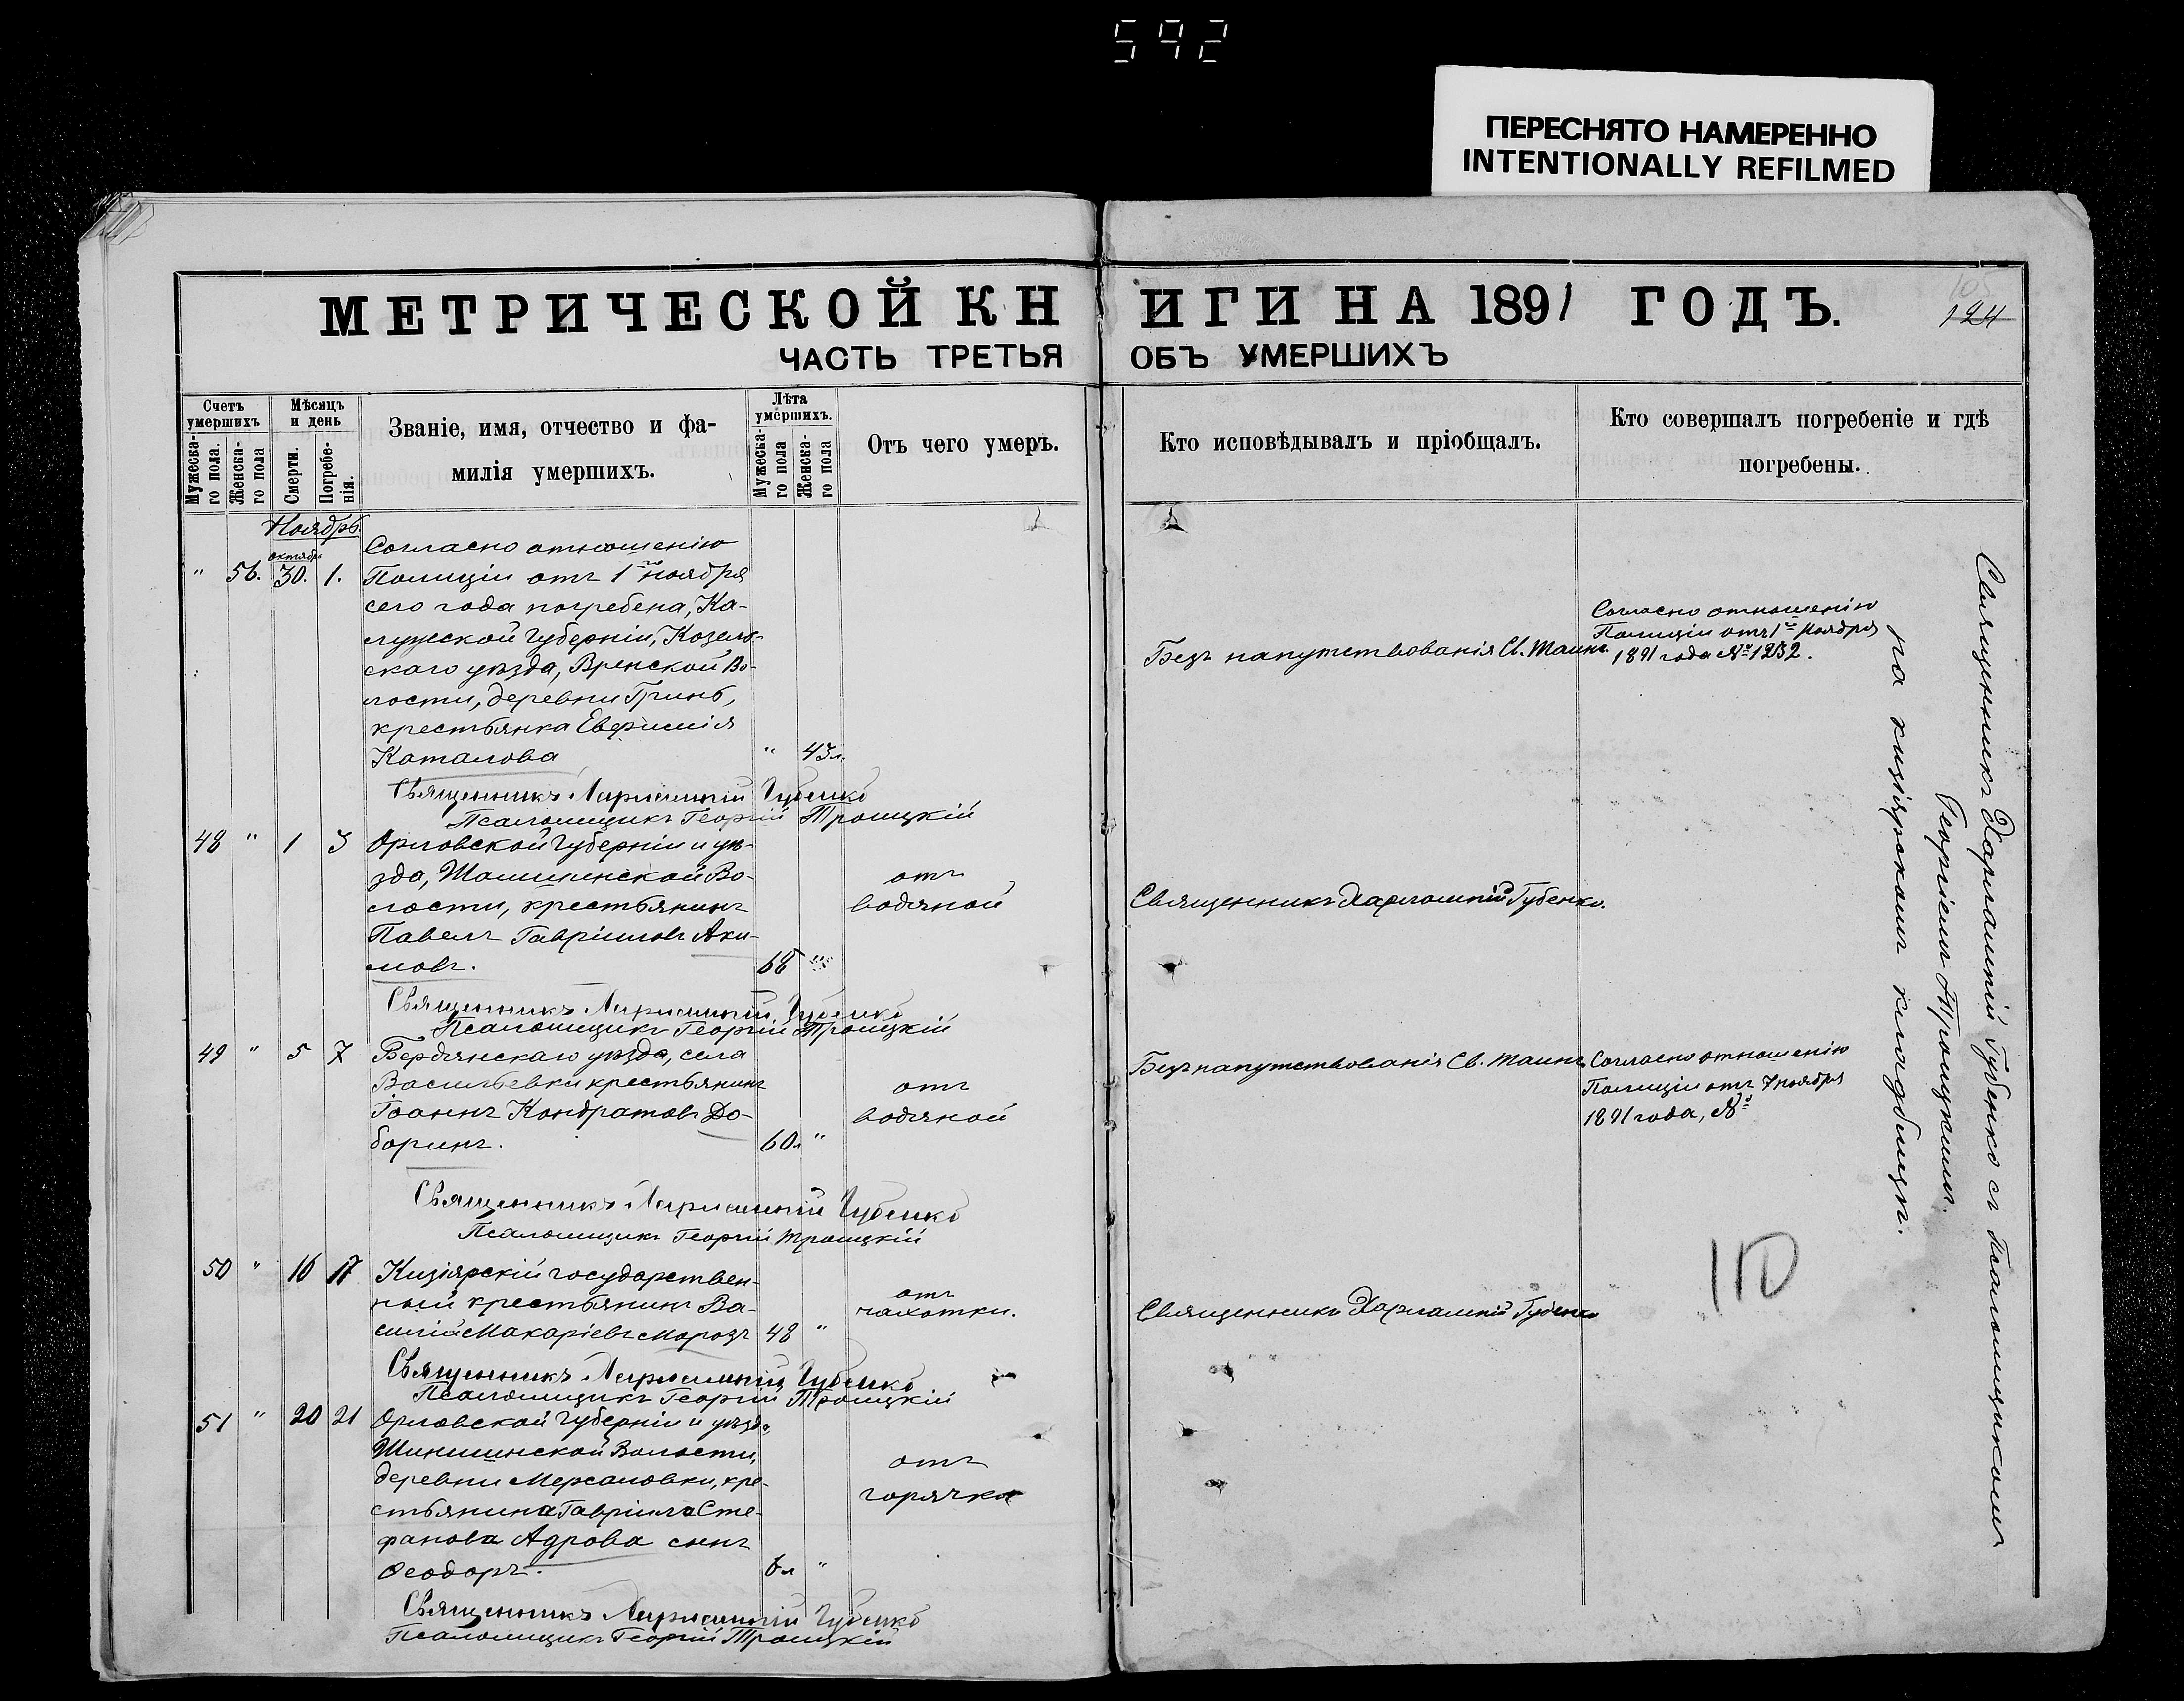 592
ПЕРЕСНЯТО НАМЕРЕННО
INTENTIONALLY REFILMED
МЕТРИЧЕСКОЙ КНИГИ НА 1891 ГОДЪ.
124
ЧАСТЬ ТРЕТЬЯ ОБЪ УМЕРШИХЪ
Счетъ умершихъ
Мужеска-го пола.
Женска-го пола
Мѣсяцъ и день
Смерти.
Погребе-нія.
Званіе, имя, отчество и фа-
милія умершихъ.
Лѣта умершихъ.
Мужеска-го пола
Женска-го пола
Отъ чего умеръ.
Кто исповѣдывалъ и пріобщалъ.
Кто совершалъ погребеніе и гдѣ
погребены.
Ноябрь.
октября
" 56. 30. 1.
Согласно отношенію
Полиціи отъ 1го ноября
сего года погребена, Ка-
лужской Губерніи, Козель-
скаго уѣзда, Вренской Во-
лости, деревни Гринь,
крестьянка Евфимія
Каталова " 43л.
Безъ напутствованія Св. Таинъ.
Согласно отношенію
Полиціи отъ 1го Ноября
1891 года № 1232.
Священникъ Харлампій Губенко
Псаломщикъ Георгій Троицкій
48 " 1 3
Орловской Губерніи и уѣ-
зда, Волости, крестьянинъ
Павелъ Гавріиловъ Аки-
мовъ. 68 "
отъ
водяной
Священникъ Харлампій Губенко.
Священникъ Харлампій Губенко
Псаломщикъ Георгій Троицкій
49 " 5 7
Бердянскаго уѣзда, села
Васильевки крестьянинъ
Іоаннъ Кондратовъ До-
боринъ. 60л "
отъ
водяной
Безъ напутствованія Св. Таинъ
Согласно отношенію
Полиціи отъ 7 ноября
1891 года, №
Священникъ Харлампій Губенко
Псаломщикъ Георгій Троицкій
50 " 16 17
Кизіярскій государствен-
ный крестьянинъ Ва-
силій Макаріевъ Морозъ 48 "
отъ
чахотки.
Священникъ Харлампій Губенко
Священникъ Харлампій Губенко
Псаломщикъ Георгій Троицкій
51 " 20 21
Орловской Губерніи и уѣзда,
Волости,
деревни кре-
стьянина Гавріила Сте-
фанова Адрова сынъ
Ѳеодоръ. 6л "
отъ
горячки
Священникъ Харлампій Губенко
Псаломщикъ Георгій Троицкій
Священникъ Харлампій Губенко съ Псаломщикомъ
Георгіемъ Троицкимъ.
на кизіярскомъ кладбищѣ.